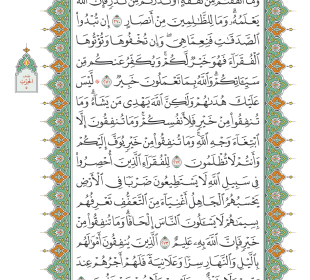 وَمَآ أَنفَقْتُم مِّن نَّفَقَةٍ أَوْ نَذَرْتُم مِّن نَّذْرٍ فَإِنَّ ٱللَّهَ
يَعْلَمُهُۥ وَمَا لِلظَّـٰلِمِينَ مِنْ أَنصَارٍ ٢٧٠ إِن تُبْدُوا۟
ٱلصَّدَقَـٰتِ فَنِعِمَّا هِىَ وَإِن تُخْفُوهَا وَتُؤْتُوهَا
ٱلْفُقَرَآءَ فَهُوَ خَيْرٌ لَّكُمْ وَيُكَفِّرُ عَنكُم مِّن
سَيِّـَٔاتِكُمْ وَٱللَّهُ بِمَا تَعْمَلُونَ خَبِيرٌ ٢٧١ لَّيْسَ
عَلَيْكَ هُدَىٰهُمْ وَلَـٰكِنَّ ٱللَّهَ يَهْدِى مَن يَشَآءُ وَمَا
تُنفِقُوا۟ مِنْ خَيْرٍ فَلِأَنفُسِكُمْ وَمَا تُنفِقُونَ إِلَّا
ٱبْتِغَآءَ وَجْهِ ٱللَّهِ وَمَا تُنفِقُوا۟ مِنْ خَيْرٍ يُوَفَّ إِلَيْكُمْ
وَأَنتُمْ لَا تُظْلَمُونَ ٢٧٢ لِلْفُقَرَآءِ ٱلَّذِينَ أُحْصِرُوا۟
فِى سَبِيلِ ٱللَّهِ لَا يَسْتَطِيعُونَ ضَرْبًا فِى ٱلْأَرْضِ
يَحْسَبُهُمُ ٱلْجَاهِلُ أَغْنِيَآءَ مِنَ ٱلتَّعَفُّفِ تَعْرِفُهُم
بِسِيمَـٰهُمْ لَا يَسْـَٔلُونَ ٱلنَّاسَ إِلْحَافًا وَمَا تُنفِقُوا۟ مِنْ
خَيْرٍ فَإِنَّ ٱللَّهَ بِهِۦ عَلِيمٌ ٢٧٣ ٱلَّذِينَ يُنفِقُونَ أَمْوَٰلَهُم
بِٱلَّيْلِ وَٱلنَّهَارِ سِرًّا وَعَلَانِيَةً فَلَهُمْ أَجْرُهُمْ عِندَ